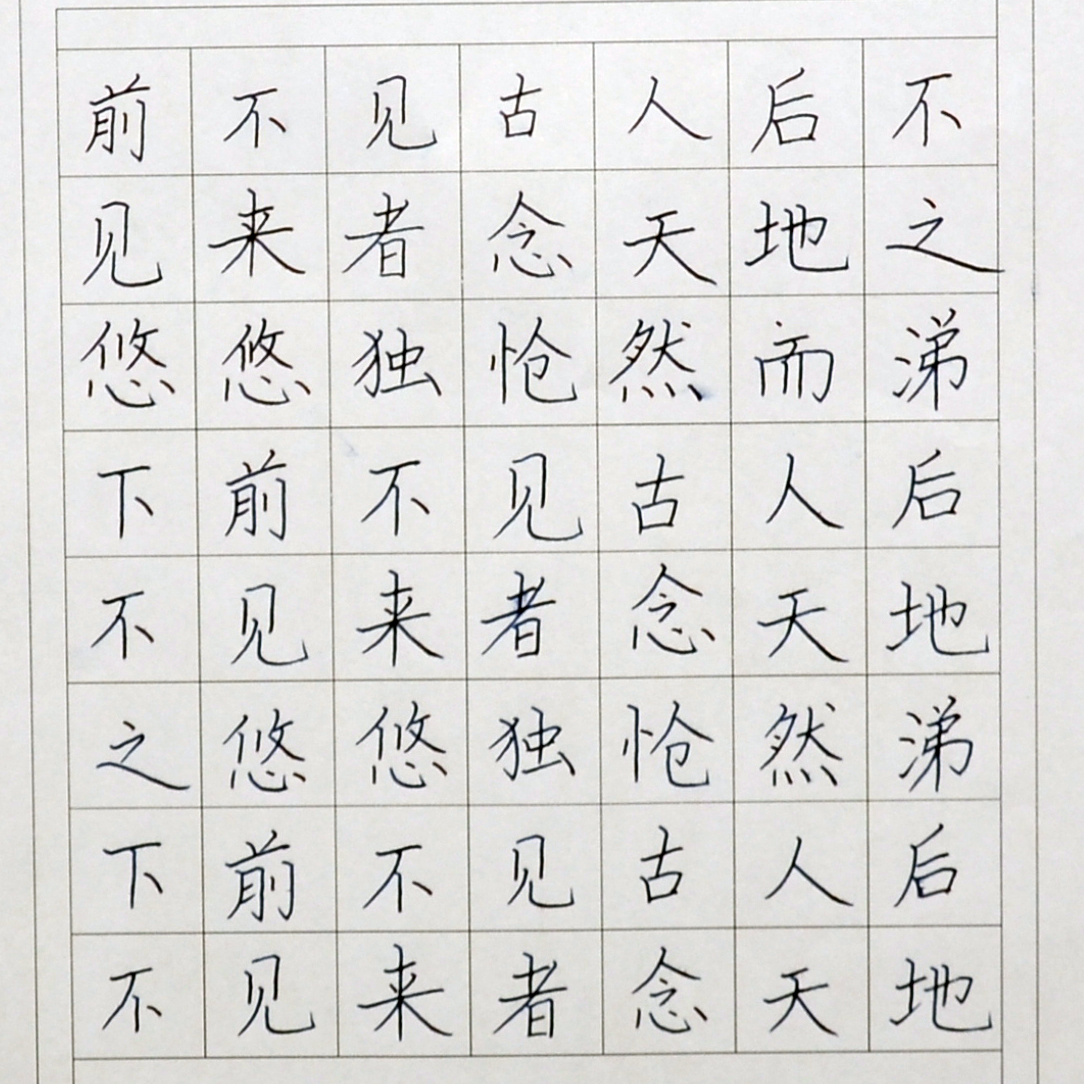 前不见古人后不
见来者念天地之
悠悠独怆然而涕
下前不见古人后
不见来者念天地
之悠悠独怆然涕
下前不见古人后
不见来者念天地